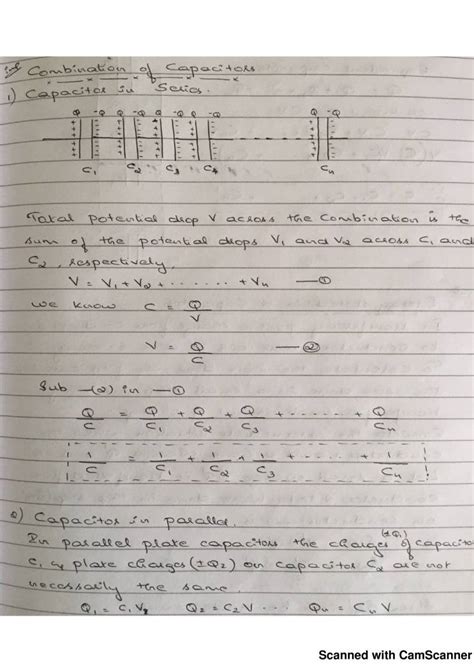 Imp Combination of Capacitors
1) Capacitor in Series.
Q -Q Q -Q Q -Q Q -Q Q -Q
C1 C2 C3 C4 Cn
Total potential drop V across the combination is the
sum of the potential drops V1 and V2 across C1 and
C2, respectively.
V = V1 + V2 + ....... + Vn —①
we know C = Q/V
V = Q/C —②
Sub —(2) in —①
Q/C = Q/C1 + Q/C2 + Q/C3 + ...... + Q/Cn
1/C = 1/C1 + 1/C2 + 1/C3 + ...... + 1/Cn
2) Capacitor in parallel.
In parallel plate capacitors the charges (±Q1) of capacitor
C1, plate charges (±Q2) on capacitor C2 are not
necessarily the same.
Q1 = C1 V, Q2 = C2 V ... Qn = Cn V
Scanned with CamScanner